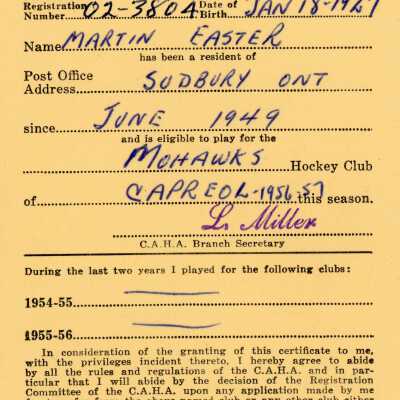 Registration Number 02-3804 Date of Birth JAN 18-1927
Name MARTIN EASTER
has been a resident of
Post Office Address SUDBURY ONT
since JUNE 1949
and is eligible to play for the
MOHAWKS Hockey Club
of CAPREOL-1956-57 this season.
L. Miller
C.A.H.A. Branch Secretary
During the last two years I played for the following clubs:
1954-55
1955-56
In consideration of the granting of this certificate to me,
with the privileges incident thereto, I hereby agree to abide
by all the rules and regulations of the C.A.H.A. and in par-
ticular that I will abide by the decision of the Registration
Committee of the C.A.H.A. upon any application made by me